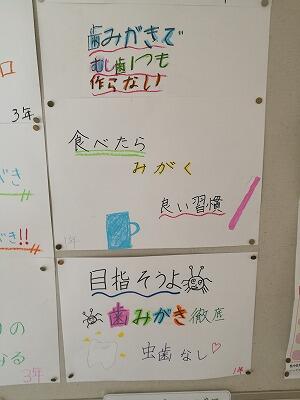 歯みがきで
むし歯1つも
作らない
食べたら
みがく
良い習慣
1年
目指そうよ
歯みがき徹底
虫歯なし♡
1年
3年
がき
がき!!
りの
なる
3年